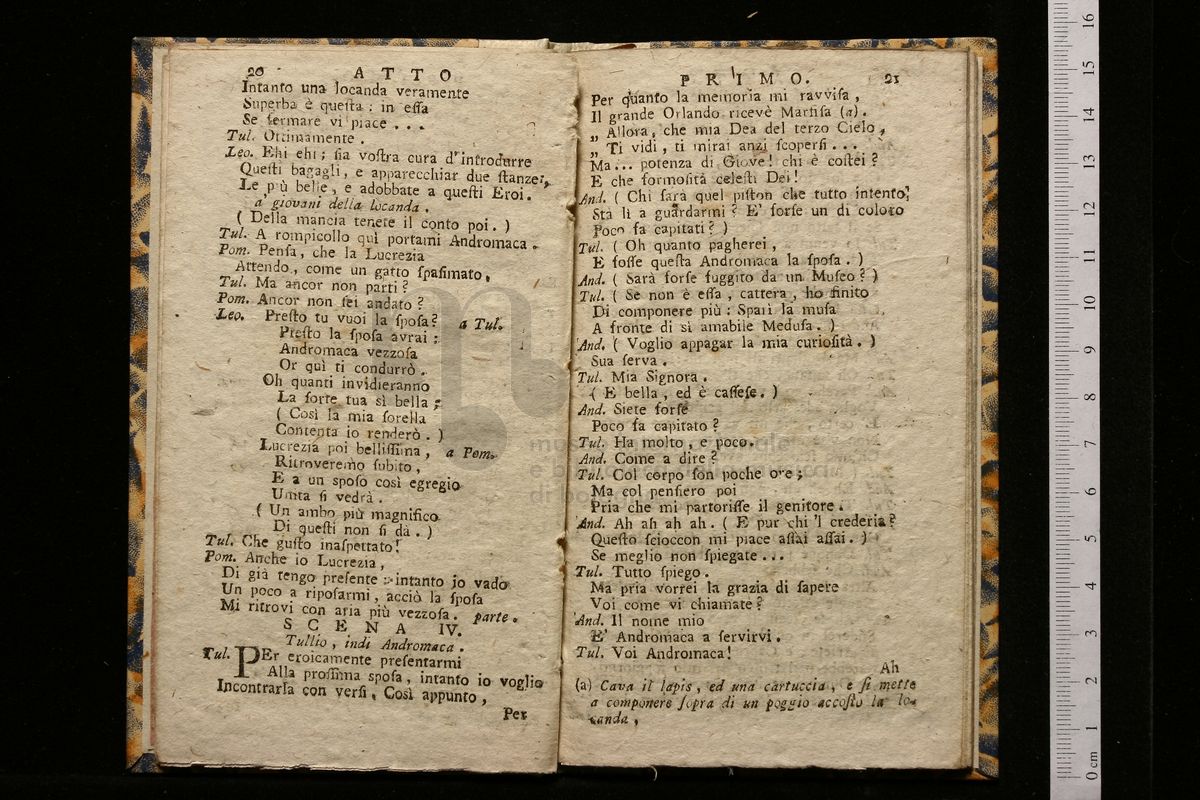 20 ATTO
Intanto una locanda veramente
Superba è queſta : in eſſa
Se fermare vi piace . . .
Tul. Ottimamente .
Leo. Ehi ehi ; ſia voſtra cura d'introdurre
Queſti bagagli , e apparecchiar due ſtanze ,
Le più belle , e adobbate a queſti Eroi .
a giovani della locanda .
( Della mancia tenete il conto poi . )
Tul. A rompicollo quì portami Andromaca .
Pom. Penſa , che la Lucrezia
Attendo , come un gatto ſpaſimato .
Tul. Ma ancor non parti ?
Pom. Ancor non ſei andato ?
Leo. Preſto tu vuoi la ſpoſa ? a Tul.
Preſto la ſpoſa avrai :
Andromaca vezzoſa
Or quì ti condurrò .
Oh quanti invidieranno
La ſorte tua sì bella ;
( Così la mia ſorella
Contenta io renderò . )
Lucrezia poi belliſſima , a Pom.
Ritroveremo ſubito ,
E a un ſpoſo così egregio
Unita ſi vedrà .
( Un ambo più magnifico
Di queſti non ſi dà . )
Tul. Che guſto inaſpettato !
Pom. Anche io Lucrezia ,
Di già tengo preſente : intanto io vado
Un poco a ripoſarmi , acciò la ſpoſa
Mi ritrovi con aria più vezzoſa . parte .
SCENA IV.
Tullio , indi Andromaca .
Tul. PEr eroicamente preſentarmi
Alla proſſima ſpoſa , intanto io voglio
Incontrarla con verſi , Così appunto ,
Per
PRIMO. 21
Per quanto la memoria mi ravviſa ,
Il grande Orlando ricevè Marfiſa (a) .
„ Allora , che mia Dea del terzo Cielo ,
„ Ti vidi , ti mirai anzi ſcoperſi . . .
Ma . . . potenza di Giove ! chi è coſtei ?
E che formoſità celeſti Dei !
And. ( Chi ſarà quel piſton che tutto intento ,
Stà lì a guardarmi ? E' forſe un di coloro
Poco fa capitati ? )
Tul. ( Oh quanto pagherei ,
E foſſe queſta Andromaca la ſpoſa . )
And. ( Sarà forſe fuggito da un Muſeo ? )
Tul. ( Se non è eſſa , cattera , ho finito
Di componere più : Sparì la muſa
A fronte di sì amabile Meduſa . )
And. ( Voglio appagar la mia curioſità . )
Sua ſerva .
Tul. Mia Signora .
( E bella , ed è caſſeſe . )
And. Siete forſe
Poco fa capitato ?
Tul. Ha molto , e poco .
And. Come a dire ?
Tul. Col corpo ſon poche ore ;
Ma col penſiero poi
Pria che mi partoriſſe il genitore .
And. Ah ah ah ah . ( E pur chi 'l crederia ?
Queſto ſcioccon mi piace aſſai aſſai . )
Se meglio non ſpiegate . . .
Tul. Tutto ſpiego .
Ma pria vorrei la grazia di ſapere
Voi come vi chiamate ?
And. Il nome mio
E' Andromaca a ſervirvi .
Tul. Voi Andromaca !
Ah
(a) Cava il lapis , ed una cartuccia , e ſi mette
a componere ſopra di un poggio accoſto la lo-
canda ,
0 cm 1 2 3 4 5 6 7 8 9 10 11 12 13 14 15 16